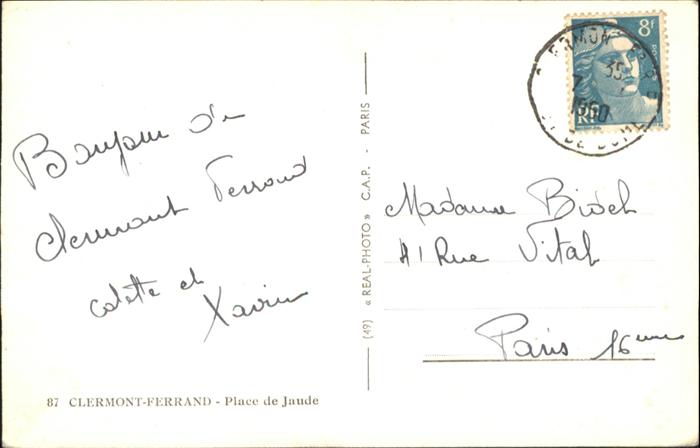 Bonjour de
Clermont Ferrand
Colette et
Xavier
87 CLERMONT-FERRAND - Place de Jaude
(49) « REAL-PHOTO » C.A.P. - PARIS
8f
RF
1950
DE DOME
Madame
41 Rue Vital
Paris 16eme